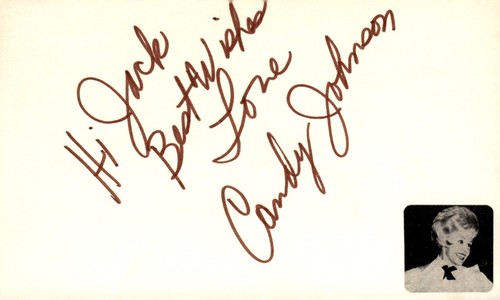 Hi Jack
Best Wishes
Love
Candy Johnson